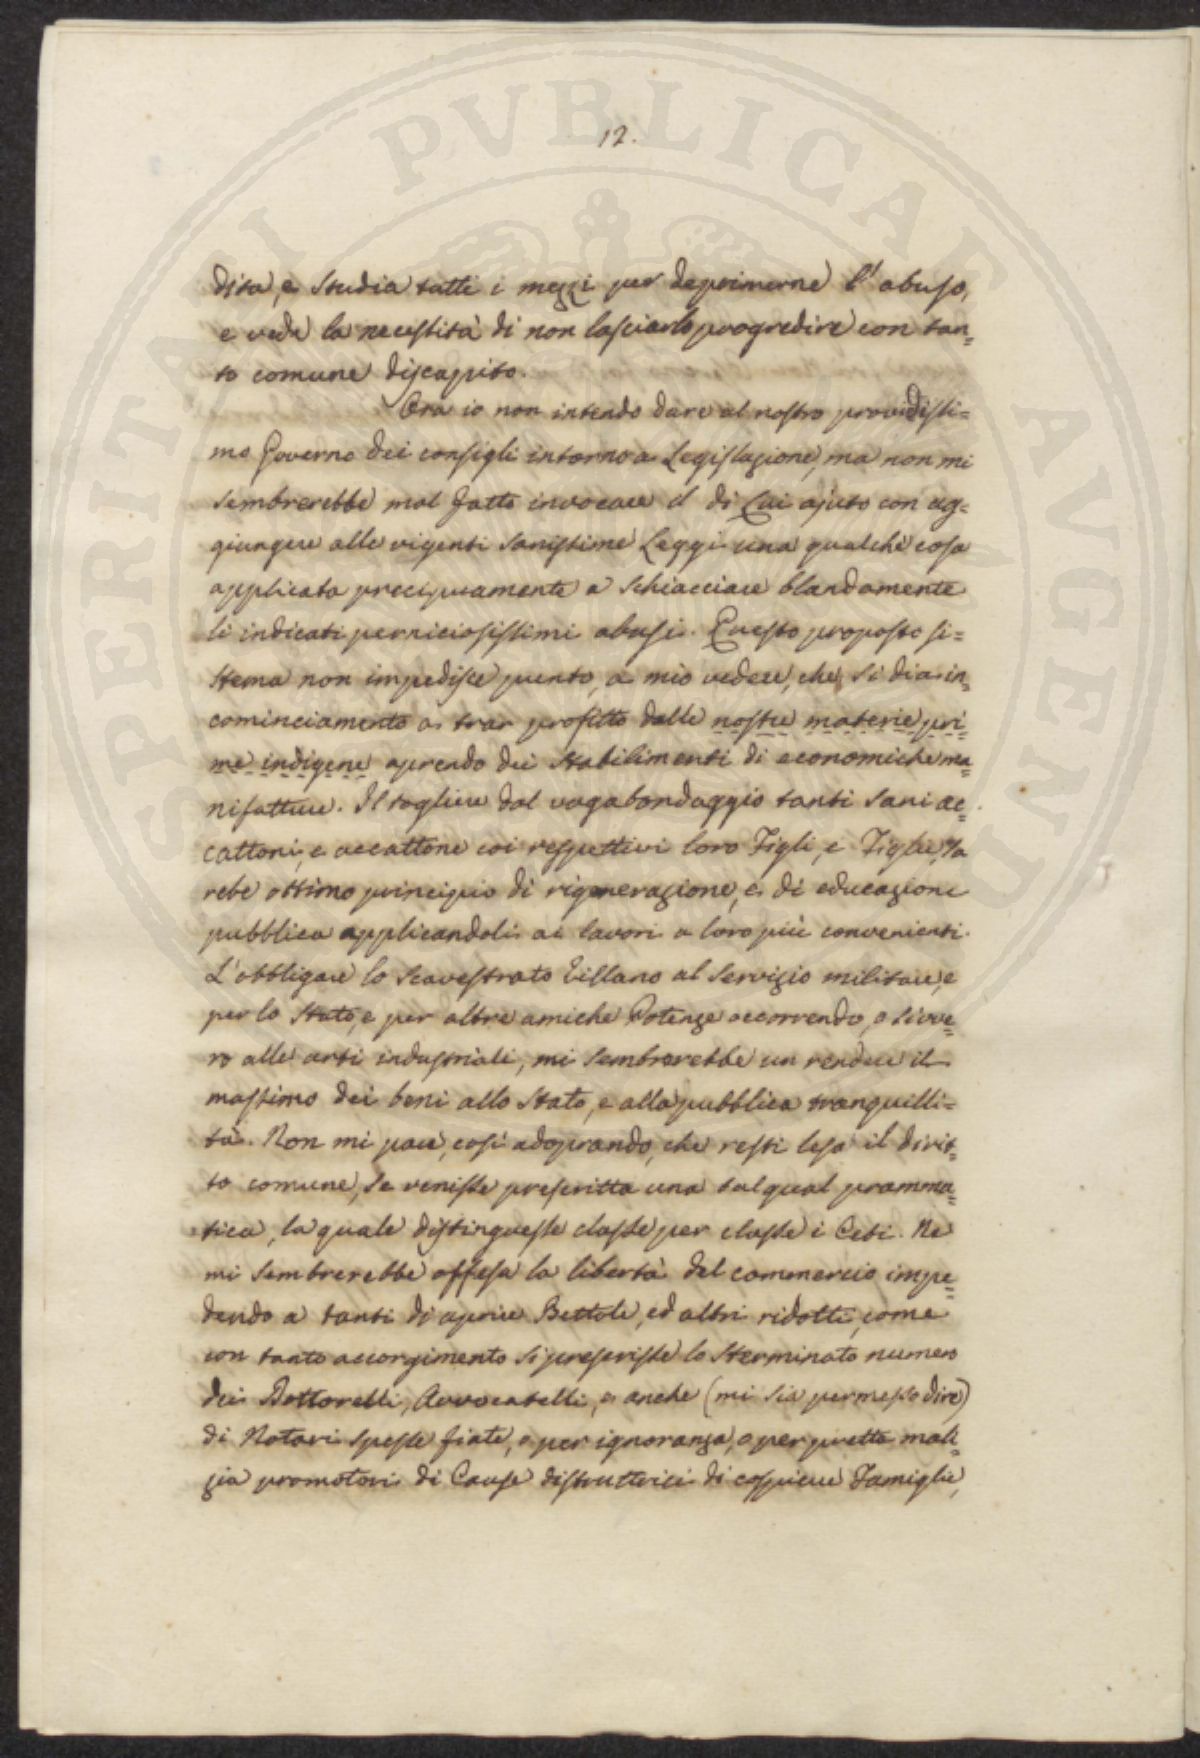 12.
dita, e studia tutti i mezzi per deprimerne l'abuso,
e vede la necessità di non lasciarlo progredire con tan=
to comune discapito.
Ora io non intendo dare al nostro providissi=
mo Governo dei consigli intorno a Legislazione, ma non mi
sembrerebbe mal fatto invocare il di Lui ajuto con ag=
giungere alle vigenti sanissime Leggi una qualche cosa
applicata precipuamente a schiacciare blandamente
li indicati perniciosissimi abusi. Questo proposto si=
stema non impedisce punto, a mio vedere, che si dia in=
cominciamento a trar profitto dalle nostre materie pri=
me indigene aprendo dei stabilimenti di economiche ma=
nifatture. Il togliere dal vagabondaggio tanti sani ac=
cattoni, e accattone coi respettivi loro Figli, e Figlie, sa
rebe ottimo principio di rigenerazione, e di educazione
pubblica applicandoli ai lavori a loro più convenienti.
L'obbligare lo scavestrato Villano al servizio militare, e
per lo Stato, e per altre amiche Potenze occorrendo, o sivve=
ro alle arti industriali, mi sembrerebbe un rendere il
massimo dei beni allo Stato, e alla pubblica tranquilli=
tà. Non mi pare, così adoprando, che resti leso il dirit=
to comune, se venisse prescritta una tal qual pramma=
tica, la quale distinguesse classe per classe i Ceti. Ne
mi sembrerebbe offesa la libertà del commercio impe=
dendo a tanti di aprire Bettole, ed altri ridotti, come
con tanto accorgimento si prescrisse lo sterminato numero
dei Dottorelli, Avvocatelli, e anche (mi sia permesso dire)
di Notari spesse fiate, o per ignoranza, o per pretta mali=
zia promotori di Cause distruttrici di cospicue Famiglie,
SPERITATI PVBLICAE AVGEND